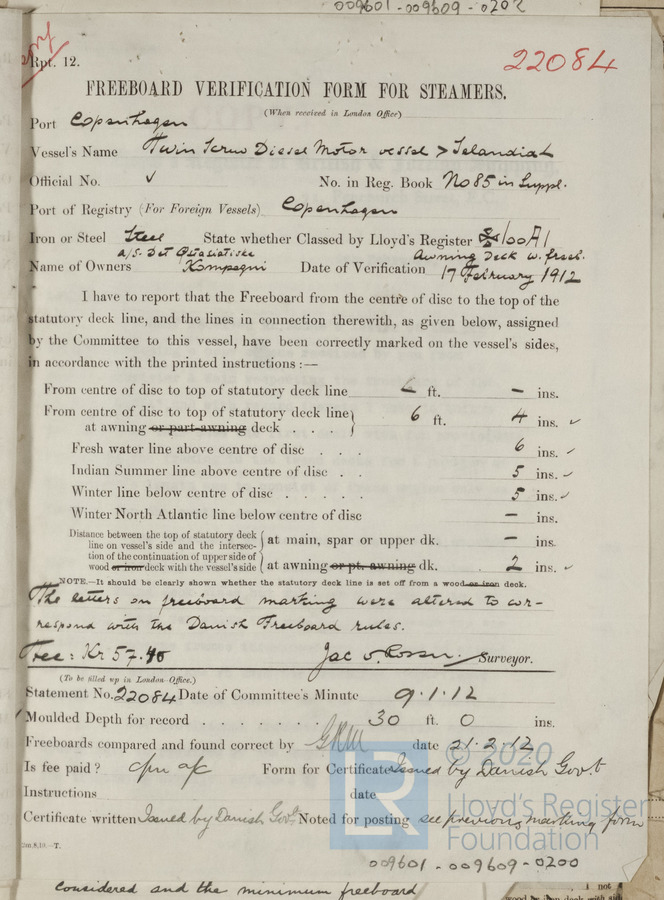 009601-009609-0202
Rpt. 12.
22084
FREEBOARD VERIFICATION FORM FOR STEAMERS.
(When received in London Office)
Port Copenhagen
Vessel's Name Twin Screw Diesel Motor vessel > Selandia <
Official No. ✓ No. in Reg. Book No 85 in Suppl.
Port of Registry (For Foreign Vessels) Copenhagen
Iron or Steel Steel State whether Classed by Lloyd's Register 100A1
A/S. Det Østasiatiske Awning Deck w. freeb.
Name of Owners Kompagni Date of Verification 17 February 1912
I have to report that the Freeboard from the centre of disc to the top of the
statutory deck line, and the lines in connection therewith, as given below, assigned
by the Committee to this vessel, have been correctly marked on the vessel's sides,
in accordance with the printed instructions :—
From centre of disc to top of statutory deck line ft. — ins.
From centre of disc to top of statutory deck line
at awning or part-awning deck . . . 6 ft. 4 ins. ✓
Fresh water line above centre of disc . . . 6 ins. ✓
Indian Summer line above centre of disc . . 5 ins. ✓
Winter line below centre of disc . . . . . 5 ins. ✓
Winter North Atlantic line below centre of disc — ins.
Distance between the top of statutory deck
line on vessel's side and the intersec-
tion of the continuation of upper side of
wood or iron deck with the vessel's side
at main, spar or upper dk. — ins.
at awning or pt. awning dk. 2 ins. ✓
NOTE.—It should be clearly shown whether the statutory deck line is set off from a wood or iron deck.
The letters on freeboard marking were altered to cor-
respond with the Danish Freeboard rules.
Fee: Kr 57.40 Surveyor.
(To be filled up in London Office.)
Statement No. 22084 Date of Committee's Minute 9.1.12
Moulded Depth for record . . . . . . . 30 ft. 0 ins.
Freeboards compared and found correct by date 21.2.12
Is fee paid? Form for Certificate Issued by Danish Govt
Instructions date
Certificate written Issued by Danish Govt. Noted for posting see previous marking form
© 2020
LR
Lloyd's Register
Foundation
009601-009609-0200
considered and the minimum freeboard